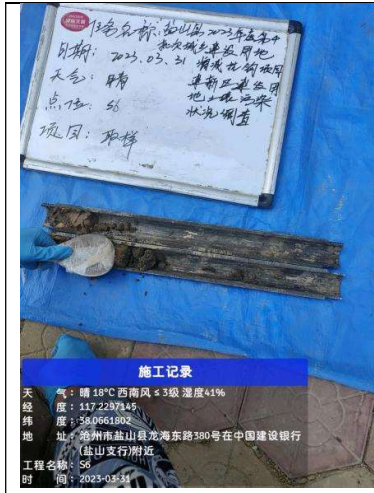 任务名称: 盐山县2023年度第十
批次城乡建设用地
增减挂钩项目
阜新区建设用
地土壤污染
状况调查
日期: 2023.03.31
天气: 晴
点位: S6
项目: 取样
施工记录
天 气: 晴 18℃ 西南风 ≤ 3级 湿度41%
经 度: 117.2297145
纬 度: 38.0661802
地 址: 沧州市盐山县龙海东路380号在中国建设银行
(盐山支行)附近
工程名称: S6
时 间: 2023-03-31